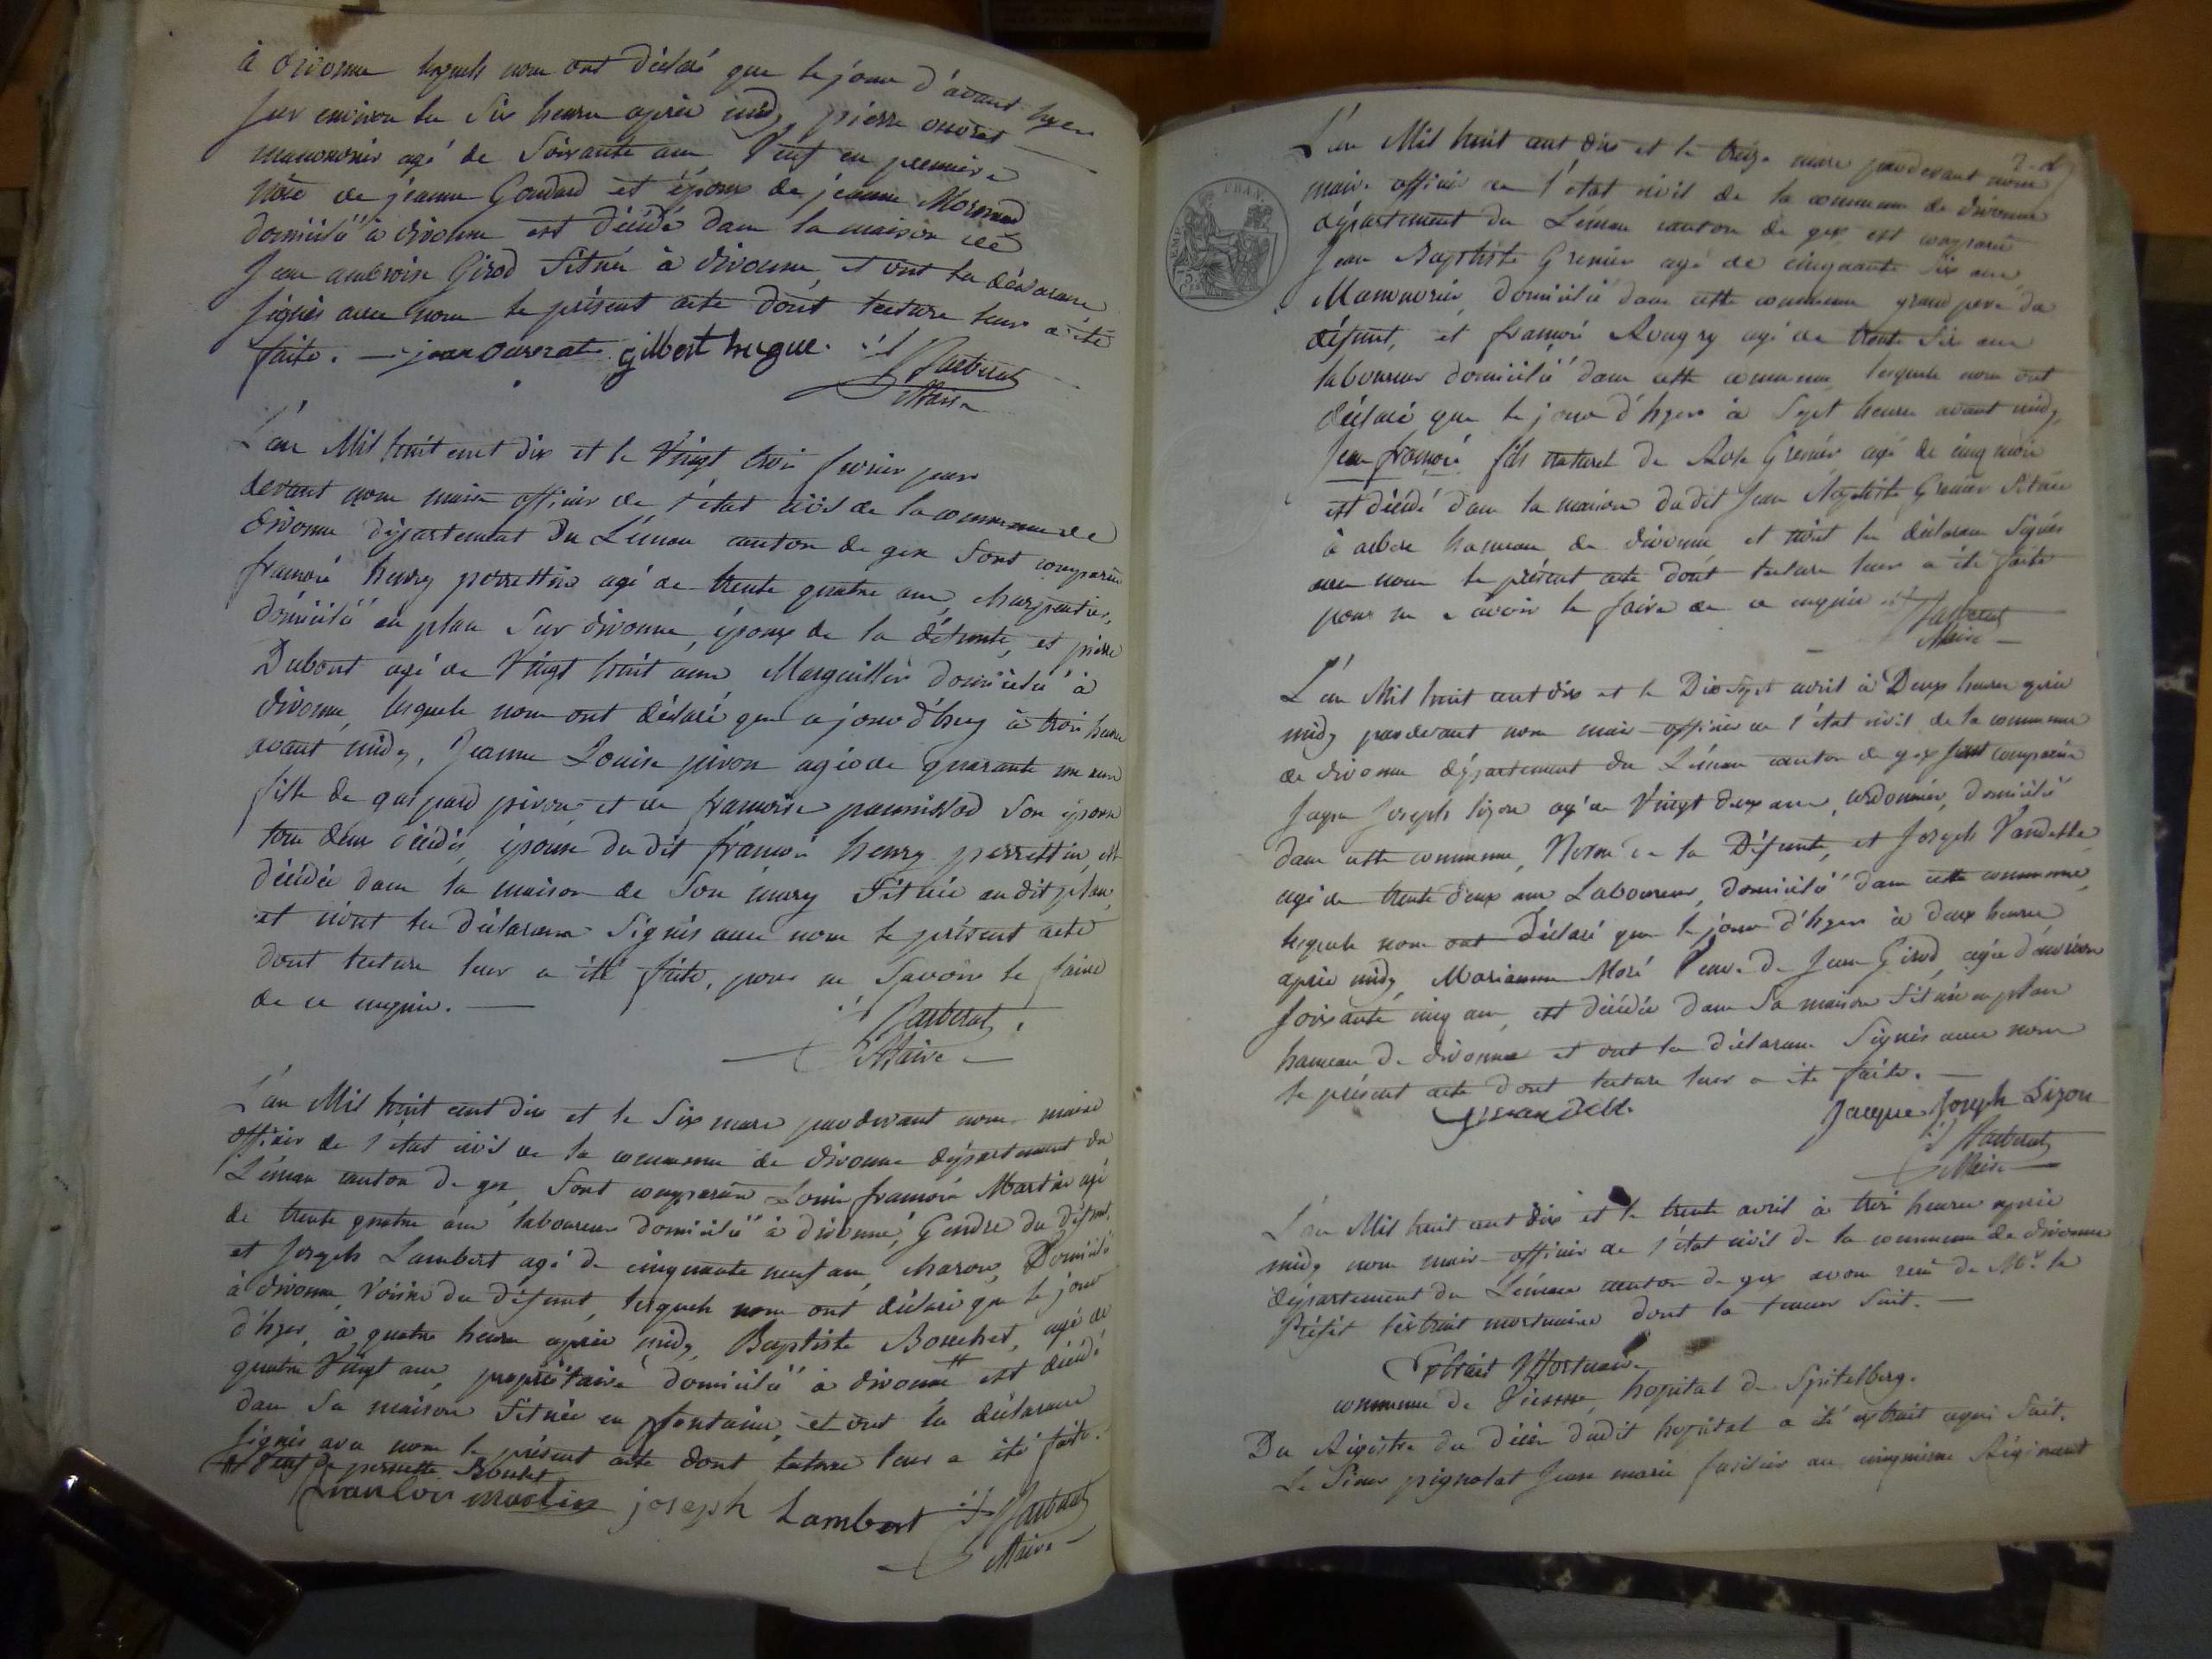 à divonne lesquels nous ont déclaré que le jour d'avant hyer
sur environ les six heures après midy, pierre
manouvrier agé de soixante ans Veuf en première
nôce de jeanne Goudard et époux de jeanne
domicilié à divonne est décédé dans la maison de
Jean ambroise Girod située à divonne, et ont les déclarans
signés avec nous le présent acte dont lecture leur a été
faite. gilbert hugue.
Maire
L'an Mil huit cent dix et le Vingt trois fevrier par
devant nous maire officier de l'état civil de la commune de
divonne département du Léman canton de gex sont comparus
françois henry perrettin agé de trente quatre ans, charpentier,
domicilié en plan sur divonne, époux de la défunte, et pierre
Dubout agé de Vingt huit ans Marguillier domicilié à
divonne, lesquels nous ont déclaré que ce jour d'huy à trois heures
avant midy, Jeanne Louise pivon agée de quarante un ans
fille de gaspard pivon et de françoise panissod son épouse
tous deux décédés, épouse du dit françois henry perrettin est
décédée dans la maison de son mary située au dit plan,
et n'ont les déclarans signés avec nous le présent acte
dont lecture leur a été faite, pour ne savoir le faire
de ce enquis.
Maire
L'an Mil huit cent dix et le six mars pardevant nous maire
officier de l'état civil de la commune de divonne département du
Léman canton de gex, sont comparus Louis françois Martin agé
de trente quatre ans laboureur domicilié à divonne, Gendre du défunt,
et Joseph Lambert agé de cinquante neuf ans, charon, Domicilié
à divonne, voisin du défunt, lesquels nous ont déclaré que le jour
d'hyer, à quatre heures après midy, Baptiste Bouchet, agé de
quatre Vingt ans, propriétaire domicilié à divonne est décédé
dans sa maison située en fontaine, et ont les déclarans
signés avec nous le présent acte dont lecture leur a été faite.
Veuf de pernette
martin joseph Lambert
Maire
L'an Mil huit cent dix et le treize mars pardevant nous
maire officier de l'état civil de la commune de divonne
département du Léman canton de gex est comparu
Jean Baptiste Grenier agé de cinquante six ans
Manouvrier, domicilié dans cette commune grand père du
défunt, et françois Rougry agé de trente six ans
laboureur domicilié dans cette commune, lesquels nous ont
déclaré que le jour d'hyer à sept heures avant midy,
Jean françois fils naturel de Rose Grenier agé de cinq mois
est décédé dans la maison du dit Jean Baptiste Grenier située
à arbere hameau de divonne et n'ont les déclarans signés
avec nous le présent acte dont lecture leur a été faite
pour ne savoir le faire de ce enquis
Maire
L'an Mil huit cent dix et le Dix sept avril à Deux heures après
midy pardevant nous maire officier de l'état civil de la commune
de divonne département du Léman canton de gex sont comparus
Jaque Joseph Lizon agé de Vingt deux ans, cordonnier, domicilié
dans cette commune, Neveu de la Défunte, et Joseph Vandelle
agé de trente deux ans Laboureur, domicilié dans cette commune,
lesquels nous ont déclaré que le jour d'hyer à deux heures
après midy, Marianne Moré Veuve de Jean Girod, agée d'environ
soixante cinq ans, est décédée dans sa maison située en plan
hameau de divonne et ont les déclarans signés avec nous
le présent acte dont lecture leur a été faite.
Jacque Joseph Lizon
Maire
L'an Mil huit cent dix et le trente avril à trois heures après
midy nous maire officier de l'état civil de la commune de divonne
département du Léman canton de gex avons reçu de Mr. le
Préfet l'extrait mortuaire dont la teneur suit.
Extrait Mortuaire
commune de Vienne, hopital de Spitelberg.
Du Registre du décès dudit hopital a été extrait ce qui suit.
Le Sieur pignolat Jean marie fusilier au cinquième Régiment